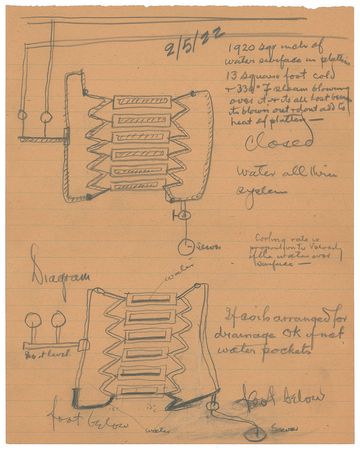 2/5/22
1920 sqr inch of
water surface in platten
13 square foot cold
335° F steam blowing
over it its all
to blown out add to
heat of platten —
Closed
Water all thru
system
Sewer
Cooling rate is
of the water over
surface —
Diagram
water
If coils arranged for
drainage OK if not
water pockets
foot below
foot below
water
Sewer